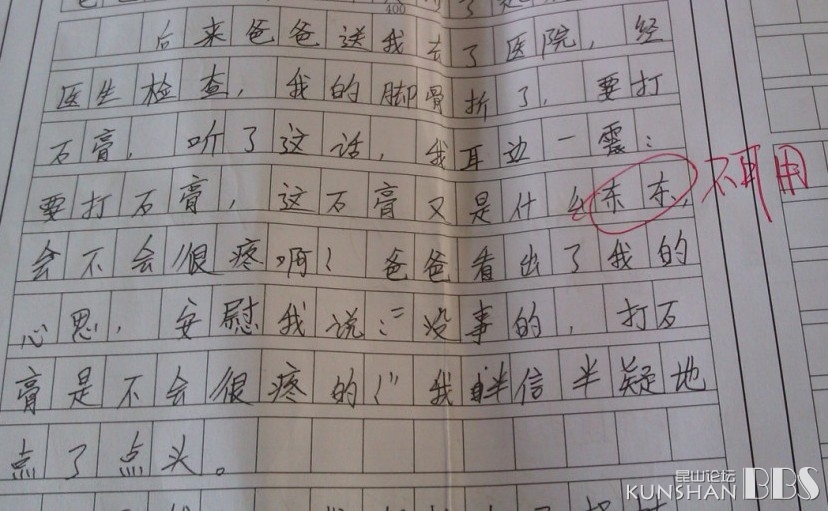 400
后来爸爸送我去了医院，经
医生检查，我的脚骨折了，要打
石膏，听了这话，我耳边一震：
要打石膏，这石膏又是什么东东，
不可用
会不会很疼啊？爸爸看出了我的
心思，安慰我说：“没事的，打石
膏是不会很疼的！”我半信半疑地
点了点头。
昆山论坛
KUNSHAN BBS